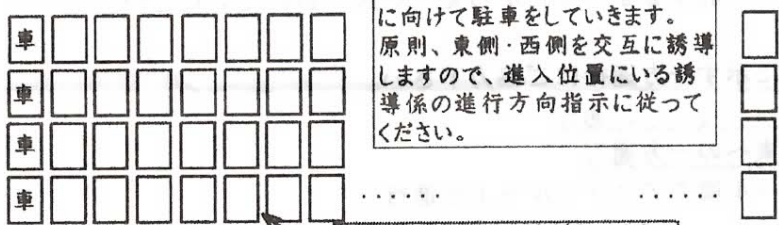 に向けて駐車をしていきます。
原則、東側・西側を交互に誘導
しますので、進入位置にいる誘
導係の進行方向指示に従って
ください。
車
車
車
車
……
……